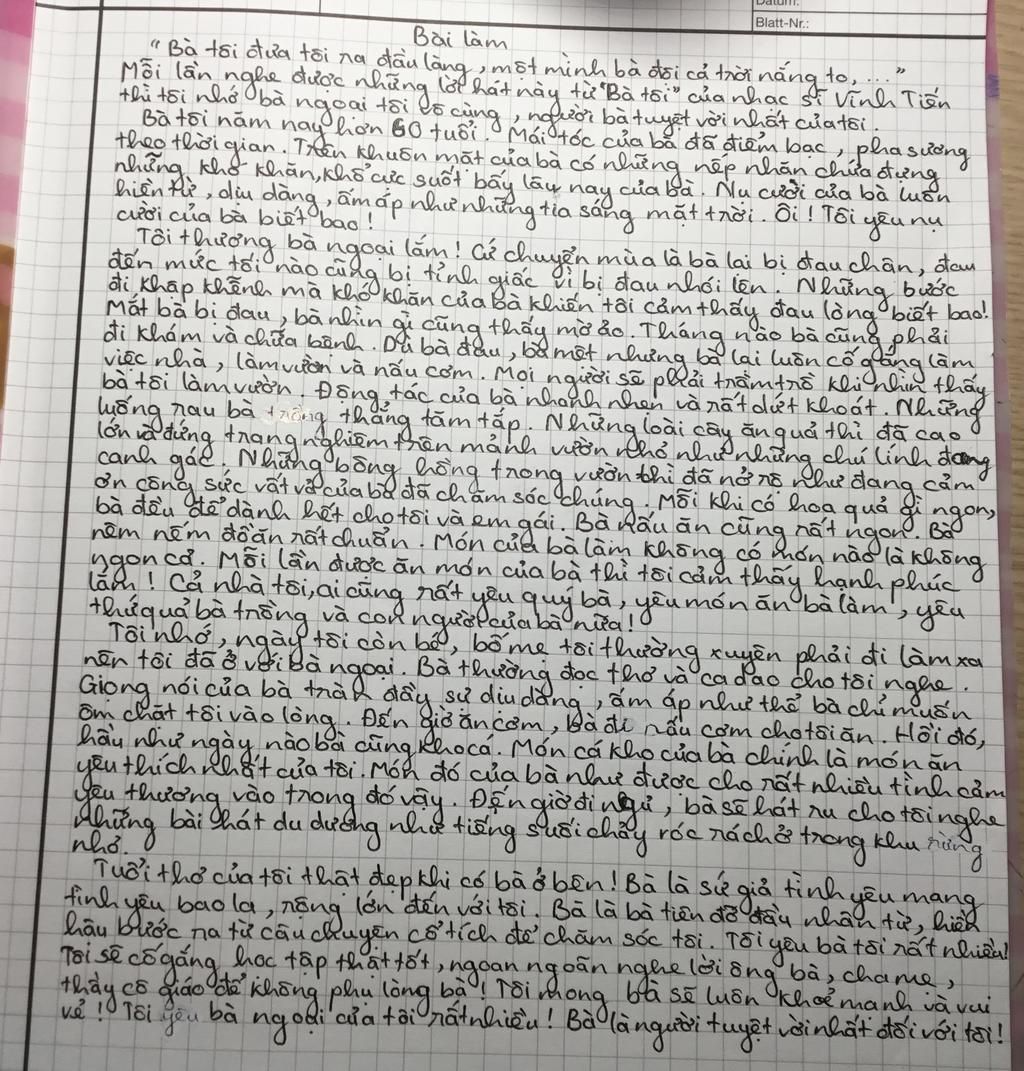 Datum:
Blatt-Nr.:
Bài làm
"Bà tôi đưa tôi ra đầu làng, một mình bà đội cả trời nắng to, ..."
Mỗi lần nghe được những lời hát này từ "Bà tôi" của nhạc sĩ Vĩnh Tiến
thì tôi nhớ bà ngoại tôi vô cùng, người bà tuyệt vời nhất của tôi.
Bà tôi năm nay hơn 60 tuổi. Mái tóc của bà đã điểm bạc, pha sương
theo thời gian. Trên khuôn mặt của bà có những nếp nhăn chứa đựng
những khó khăn, khổ cực suốt bấy lâu nay của bà. Nụ cười của bà luôn
hiền từ, dịu dàng, ấm áp như những tia sáng mặt trời. Ôi! Tôi yêu nụ
cười của bà biết bao!
Tôi thương bà ngoại lắm! Cứ chuyển mùa là bà lại bị đau chân, đau
đến mức tối nào cũng bị tỉnh giấc vì bị đau nhói lên. Những bước
đi khập khễnh mà khó khăn của bà khiến tôi cảm thấy đau lòng biết bao!
Mắt bà bị đau, bà nhìn gì cũng thấy mờ ảo. Tháng nào bà cũng phải
đi khám và chữa bệnh. Dù bà đau, bà mệt nhưng bà lại luôn cố gắng làm
việc nhà, làm vườn và nấu cơm. Mọi người sẽ phải trầm trồ khi nhìn thấy
bà tôi làm vườn. Động tác của bà nhanh nhẹn và rất dứt khoát. Những
luống rau bà trồng thẳng tăm tắp. Những loài cây ăn quả thì đã cao
lớn và đứng trang nghiêm trên mảnh vườn nhỏ như những chú lính đang
canh gác. Những bông hồng trong vườn thì đã nở rộ như đang cảm
ơn công sức vất vả của bà đã chăm sóc chúng. Mỗi khi có hoa quả gì ngon,
bà đều để dành hết cho tôi và em gái. Bà nấu ăn cũng rất ngon. Bà
nêm nếm đồ ăn rất chuẩn. Món của bà làm không có món nào là không
ngon cả. Mỗi lần được ăn món của bà thì tôi cảm thấy hạnh phúc
lắm! Cả nhà tôi, ai cũng rất yêu quý bà, yêu món ăn bà làm, yêu
thứ quả bà trồng và con người của bà nữa!
Tôi nhớ, ngày tôi còn bé, bố mẹ tôi thường xuyên phải đi làm xa
nên tôi đã ở với bà ngoại. Bà thường đọc thơ và ca dao cho tôi nghe.
Giọng nói của bà tràn đầy sự dịu dàng, ấm áp như thể bà chỉ muốn
ôm chặt tôi vào lòng. Đến giờ ăn cơm, bà đi nấu cơm cho tôi ăn. Hồi đó,
hầu như ngày nào bà cũng kho cá. Món cá kho của bà chính là món ăn
yêu thích nhất của tôi. Món đó của bà như được cho rất nhiều tình cảm
yêu thương vào trong đó vậy. Đến giờ đi ngủ, bà sẽ hát ru cho tôi nghe
những bài hát du dương như tiếng suối chảy róc rách ở trong khu rừng
nhỏ.
Tuổi thơ của tôi thật đẹp khi có bà ở bên! Bà là sứ giả tình yêu mang
tình yêu bao la, rộng lớn đến với tôi. Bà là bà tiên đỡ đầu nhân từ, hiền
hậu bước ra từ câu chuyện cổ tích để chăm sóc tôi. Tôi yêu bà tôi rất nhiều!
Tôi sẽ cố gắng học tập thật tốt, ngoan ngoãn nghe lời ông bà, cha mẹ,
thầy cô giáo để không phụ lòng bà! Tôi mong bà sẽ luôn khoẻ mạnh và vui
vẻ! Tôi yêu bà ngoại của tôi rất nhiều! Bà là người tuyệt vời nhất đối với tôi!